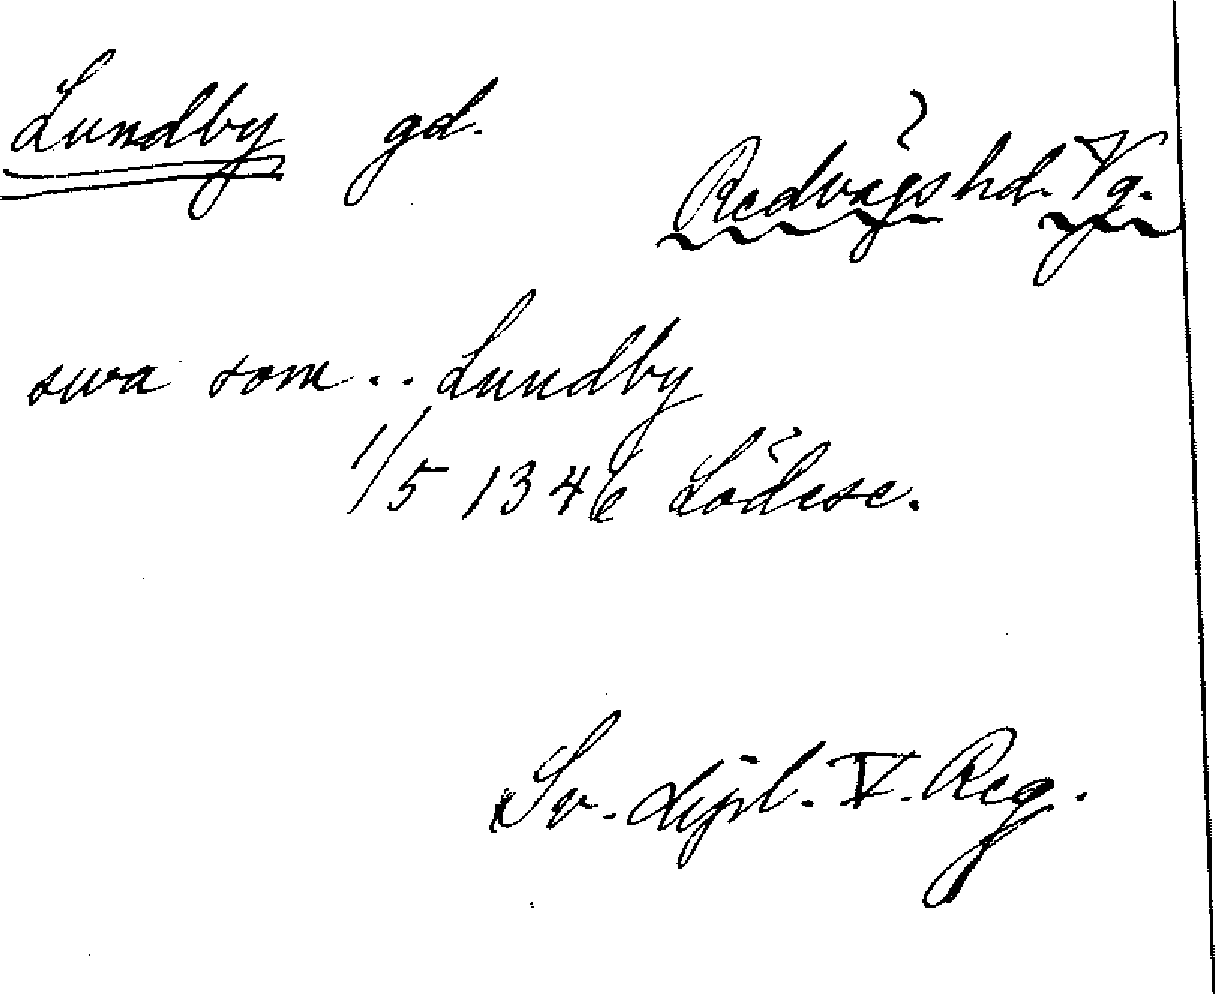 Lundby gd.
?
Redvägs hd. Vg.
swa som . . Lundby
1/5 1346 Lödese.
Sv. dipl. V. Reg.